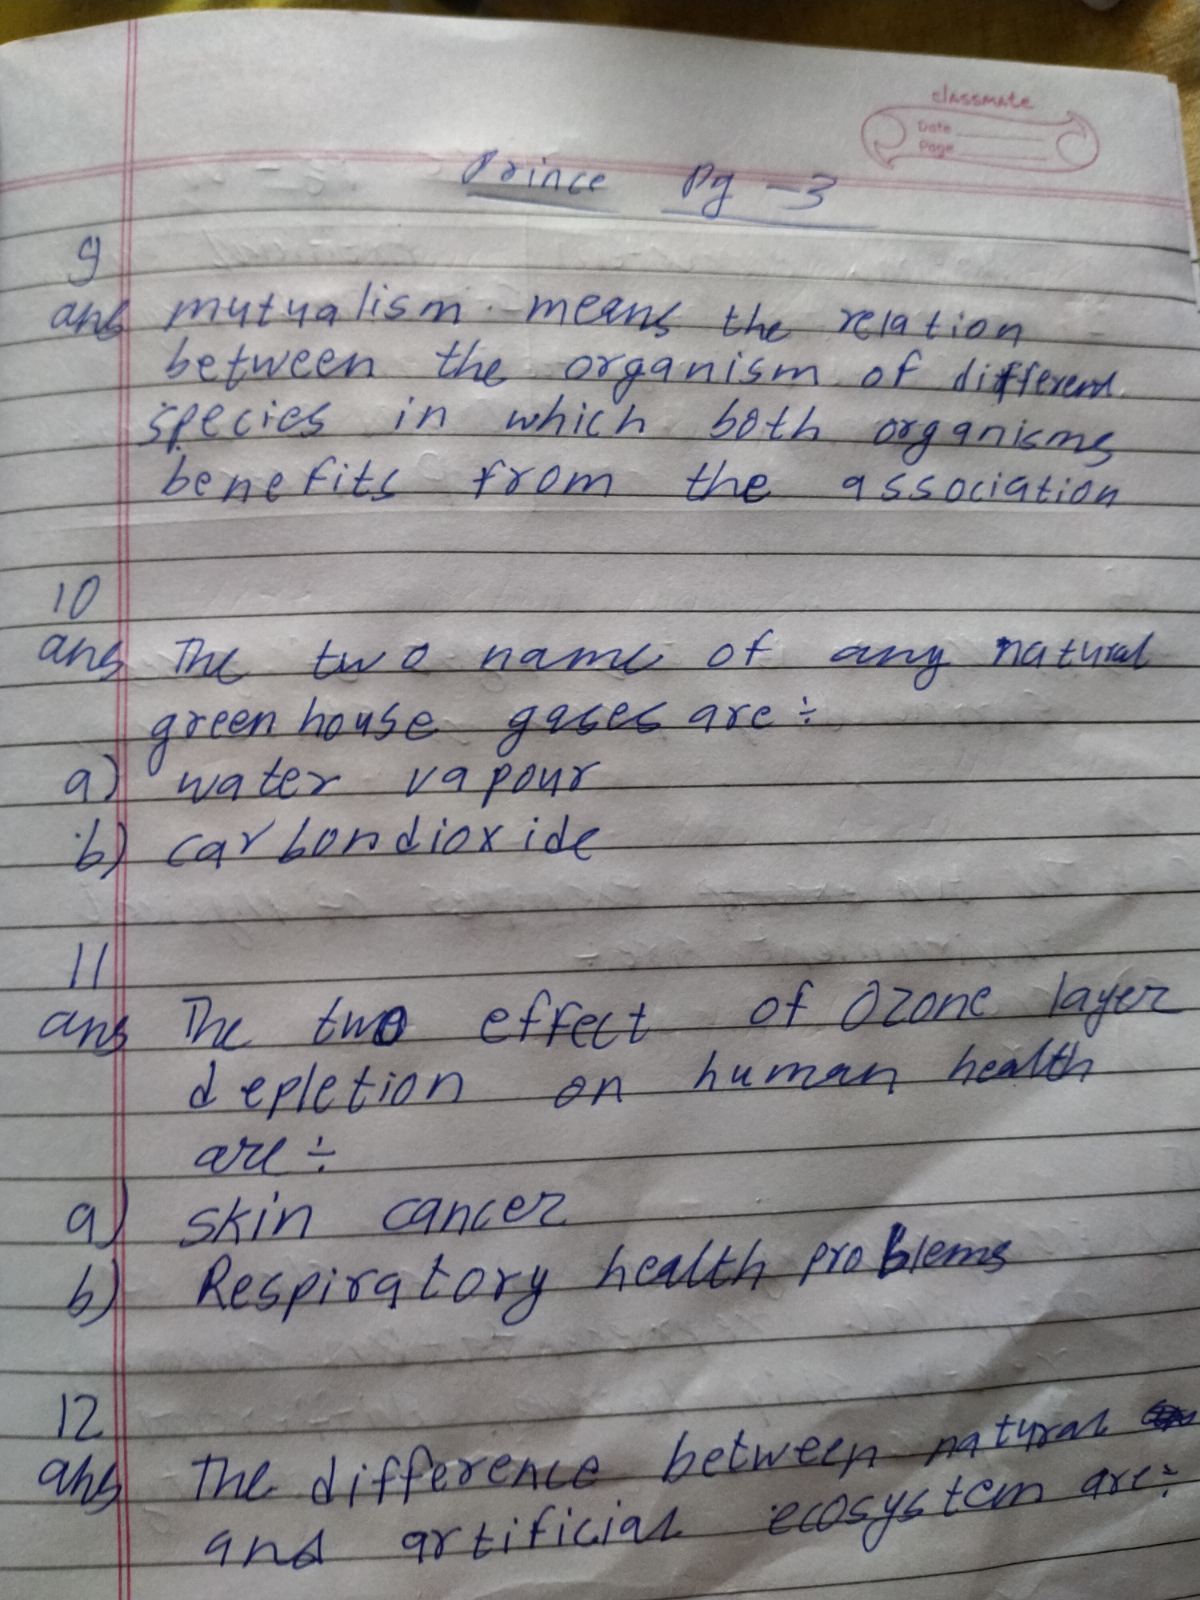 classmate
Date
Page
Prince Pg - 3
9
ans mutualism means the relation
between the organism of different
species in which both organisms
benefits from the association
10
ans The two name of any natural
green house gases are ÷
a) water vapour
b) carbondioxide
11
ans The two effect of Ozone layer
depletion on human health
are ÷
a) skin cancer
b) Respiratory health problems
12
ans The difference between natural
and artificial ecosystem are ÷